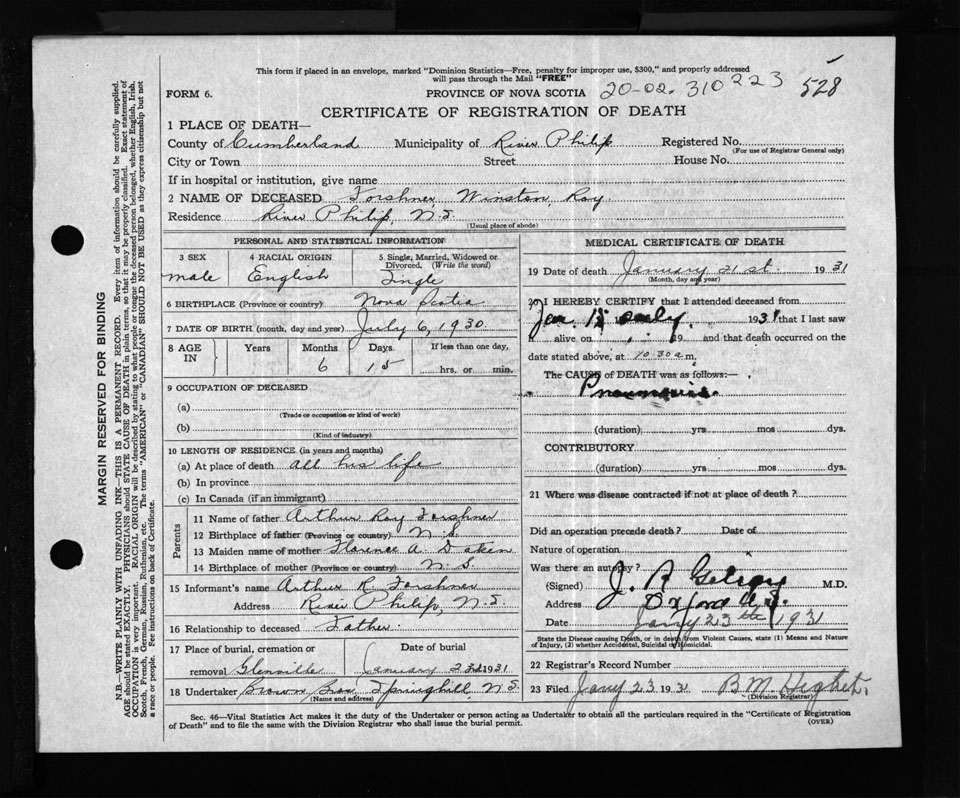 This form if placed in an envelope, marked "Dominion Statistics—Free, penalty for improper use, $300," and properly addressed
will pass through the Mail "FREE"
FORM 6.
PROVINCE OF NOVA SCOTIA
20-02. 310223
528
CERTIFICATE OF REGISTRATION OF DEATH
1 PLACE OF DEATH—
County of Cumberland Municipality of River Philip Registered No.
(For use of Registrar General only)
City or Town Street House No.
If in hospital or institution, give name
2 NAME OF DECEASED Forshner, Winston, Roy.
Residence River Philip, N.S.
(Usual place of abode)
PERSONAL AND STATISTICAL INFORMATION
3 SEX 4 RACIAL ORIGIN 5 Single, Married, Widowed or Divorced. (Write the word)
male English Single
6 BIRTHPLACE (Province or country) Nova Scotia
7 DATE OF BIRTH (month, day and year) July 6, 1930.
8 AGE IN Years Months Days If less than one day,
6 15 hrs. or min.
9 OCCUPATION OF DECEASED
(a)
(Trade or occupation or kind of work)
(b)
(Kind of industry)
10 LENGTH OF RESIDENCE (in years and months)
(a) At place of death all his life
(b) In province
(c) In Canada (if an immigrant)
Parents
11 Name of father Arthur Roy Forshner
12 Birthplace of father (Province or country) N.S.
13 Maiden name of mother Florence A. Daken
14 Birthplace of mother (Province or country) N.S.
15 Informant's name Arthur R. Forshner
Address River Philip, N.S.
16 Relationship to deceased Father.
17 Place of burial, cremation or removal Glenville
Date of burial January 23d 1931
18 Undertaker Springhill N.S.
(Name and address)
MEDICAL CERTIFICATE OF DEATH
19 Date of death January 21st. 1931
(Month, day and year)
20 I HEREBY CERTIFY that I attended deceased from
Jan. only. 1931 that I last saw
h alive on 19 and that death occurred on the
date stated above, at 10.30 a m.
The CAUSE of DEATH was as follows:—
Pneumonia.
(duration) yrs mos dys.
CONTRIBUTORY
(duration) yrs mos dys.
21 Where was disease contracted if not at place of death?
Did an operation precede death? Date of
Nature of operation
Was there an autopsy?
(Signed) J. M.D.
Address Oxford N.S.
Date Jany 23rd 1931
State the Disease causing Death, or in death from Violent Causes, state (1) Means and Nature
of Injury, (2) whether Accidental, Suicidal or Homicidal.
22 Registrar's Record Number
23 Filed Jany 23 1931 B. M. Heghet.
(Division Registrar)
Sec. 46—Vital Statistics Act makes it the duty of the Undertaker or person acting as Undertaker to obtain all the particulars required in the "Certificate of Registration
of Death" and to file the same with the Division Registrar who shall issue the burial permit.
(OVER)
MARGIN RESERVED FOR BINDING
N.B.—WRITE PLAINLY WITH UNFADING INK—THIS IS A PERMANENT RECORD. Every item of information should be carefully supplied.
AGE should be stated EXACTLY. PHYSICIANS should STATE CAUSE OF DEATH in plain terms, so that it may be properly classified. Exact statement of
OCCUPATION is very important. RACIAL ORIGIN will be described by stating to what people or tongue the deceased person belonged, whether English, Irish,
Scotch, French, German, Russian, Ruthenian, etc. The terms "AMERICAN" or "CANADIAN" SHOULD NOT BE USED as they express citizenship but not
a race or people. See instructions on back of Certificate.